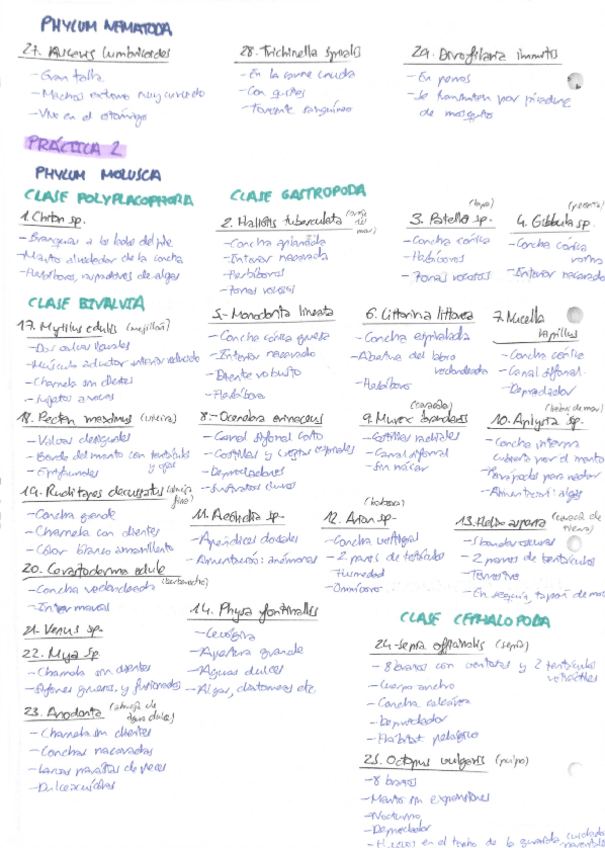 PHYLUM NEMATODA
27. Ascaris lumbricoides
- Gran talla
- Machos extremo muy curvado
- Vive en el estómago
28. Trichinella spiralis
- En la carne cruda
- Con quistes
- Torrente sanguíneo
29. Dirofilaria immitis
- En perros
- Se transmiten por picadura
de mosquito
PRÁCTICA 2
PHYLUM MOLUSCA
CLASE POLYPLACOPHORA
1. Chiton sp.
- Branquias a los lados del pie
- Manto alrededor de la concha
- Herbívoros, raspadores de algas
CLASE GASTROPODA
2. Haliotis tuberculata (oreja de mar)
- Concha aplanada
- Interior nacarado
- Herbívoros
- Zonas rocosas
3. Patella sp. (lapa)
- Concha cónica
- Herbívoros
- Zonas rocosas
4. Gibbula sp.
- Concha cónica
- Interior nacarado
CLASE BIVALVIA
17. Mytilus edulis (mejillón)
- Dos valvas iguales
- Músculo aductor anterior reducido
- Charnela sin dientes
- Sujetos a rocas
5.- Monodonta lineata
- Concha cónica gruesa
- Interior nacarado
- Diente robusto
- Herbívoro
6. Littorina littorea
- Concha espiralada
- Abertura del labro
redondeada
- Herbívoro
7. Nucella
lapillus
- Concha cónica
- Canal sifonal
- Depredador
18. Pecten maximus (vieira)
- Valvas desiguales
- Borde del manto con tentáculos
y ojos
- Epifaunales
8.- Ocenebra erinaceus
- Canal sifonal corto
- Costillas y crestas espirales
- Depredadores
- Sustratos duros
9. Murex brandaris
- Costillas radiales
- Canal sifonal
- Sin nácar
10. Aplysia sp. (liebre de mar)
- Concha interna
cubierta por el manto
- Parápodos para nadar
- Alimentación: algas
19. Ruditapes decussatus (almeja fina)
- Concha grande
- Charnela con dientes
- Color blanco amarillento
11. Aeolidia sp-
- Apéndices dorsales
- Alimentación: anémonas
12. Arion sp- (babosa)
- Concha vestigial
- 2 pares de tentáculos
- Humedad
- Omnívoro
13. Helix aspersa (caracol de tierra)
- 2 pares de tentáculos
- Terrestre
20. Cerastoderma edule (berberecho)
- Concha redondeada
- Intermareal
21- Venus sp-
22. Mya sp.
- Charnela sin dientes
- Sifones gruesos y fusionados
14. Physa fontinalis
- Levógira
- Apertura grande
- Aguas dulces
- Algas, diatomeas etc.
23. Anodonta (almeja de agua dulce)
- Charnela sin dientes
- Conchas nacaradas
- Larvas parásitas de peces
- Dulceacuícolas
CLASE CEPHALOPODA
24- Sepia officinalis (sepia)
- 8 brazos con ventosas y 2 tentáculos
retráctiles
- Cuerpo ancho
- Concha calcárea
- Depredador
- Hábitat pelágico
25. Octopus vulgaris (pulpo)
- 8 brazos
- Manto sin expansiones
- Nocturno
- Depredador